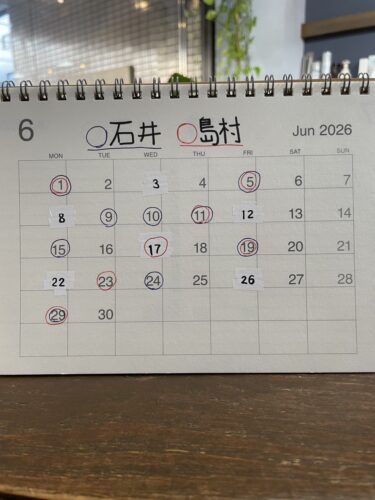 6 ○石井 ○島村 Jun 2026
MON TUE WED THU FRI SAT SUN
1 2 3 4 5 6 7
8 9 10 11 12 13 14
15 16 17 18 19 20 21
22 23 24 25 26 27 28
29 30